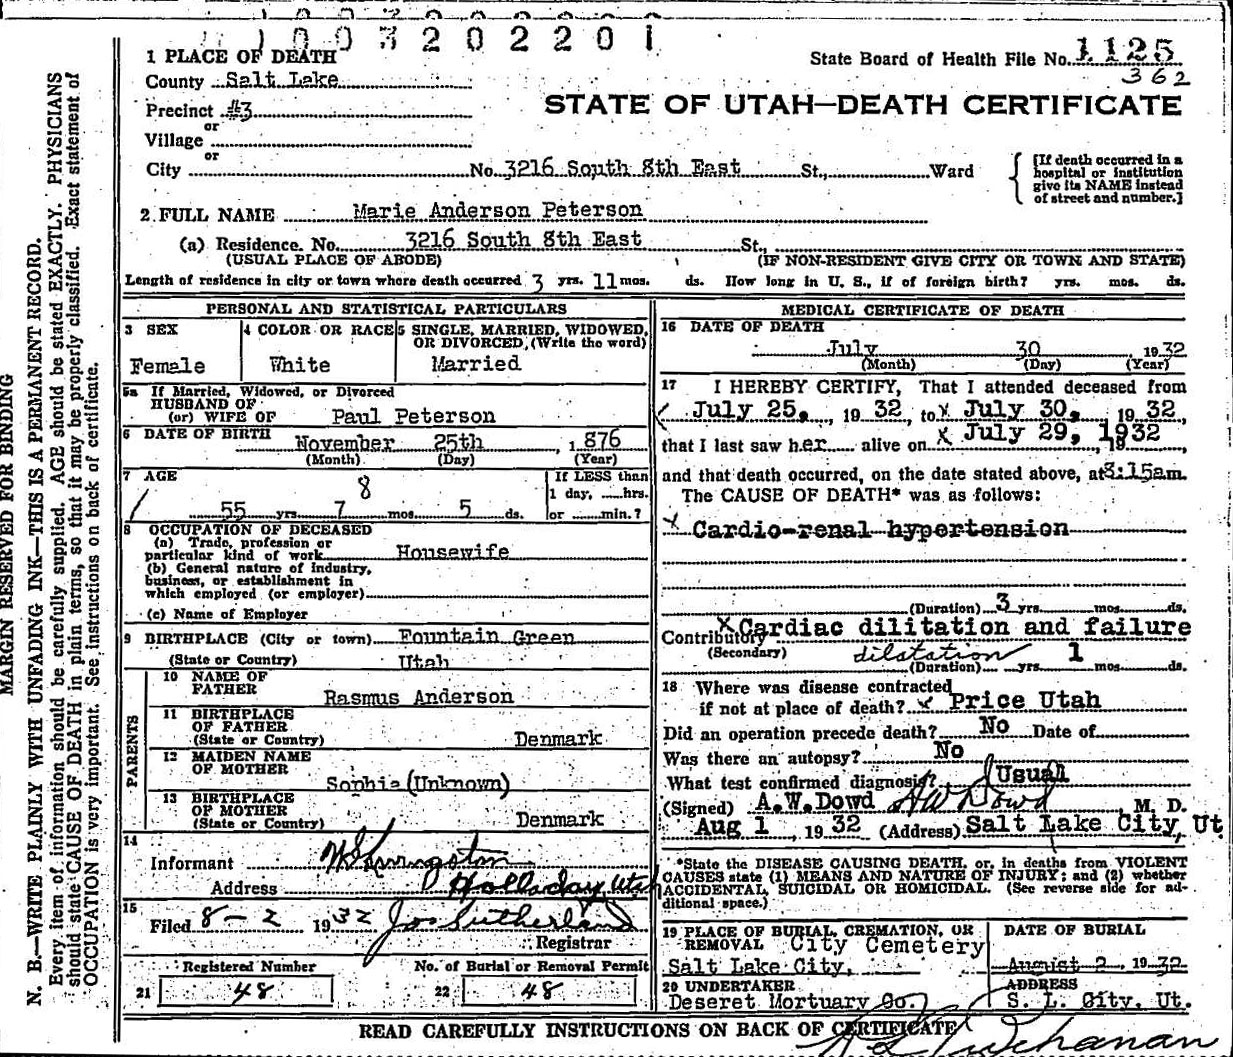 1003202201
1 PLACE OF DEATH
State Board of Health File No. 1125
County Salt Lake
362
Precinct #3
STATE OF UTAH—DEATH CERTIFICATE
or
Village
or
City No. 3216 South 8th East St., Ward
[If death occurred in a hospital or institution give its NAME instead of street and number.]
2 FULL NAME Marie Anderson Peterson
(a) Residence. No. 3216 South 8th East St.,
(USUAL PLACE OF ABODE) (IF NON-RESIDENT GIVE CITY OR TOWN AND STATE)
Length of residence in city or town where death occurred 3 yrs. 11 mos. ds. How long in U. S., if of foreign birth? yrs. mos. ds.
PERSONAL AND STATISTICAL PARTICULARS
3 SEX
Female
4 COLOR OR RACE
White
5 SINGLE, MARRIED, WIDOWED,
OR DIVORCED, (Write the word)
Married
5a If Married, Widowed, or Divorced
HUSBAND OF
(or) WIFE OF Paul Peterson
6 DATE OF BIRTH November 25th, 1876
(Month) (Day) (Year)
7 AGE
8
55 yrs 7 mos. 5 ds.
If LESS than
1 day, hrs.
or min.?
8 OCCUPATION OF DECEASED
(a) Trade, profession or
particular kind of work Housewife
(b) General nature of industry,
business, or establishment in
which employed (or employer)
(c) Name of Employer
9 BIRTHPLACE (City or town) Fountain Green
(State or Country) Utah
PARENTS
10 NAME OF
FATHER Rasmus Anderson
11 BIRTHPLACE
OF FATHER
(State or Country) Denmark
12 MAIDEN NAME
OF MOTHER
Sophia (Unknown)
13 BIRTHPLACE
OF MOTHER
(State or Country) Denmark
14
Informant
Address Holladay Utah
15
Filed 8-2 1932 Jos Sutherland
Registrar
Registered Number
21 48
No. of Burial or Removal Permit
22 48
MEDICAL CERTIFICATE OF DEATH
16 DATE OF DEATH
July 30 1932
(Month) (Day) (Year)
17 I HEREBY CERTIFY, That I attended deceased from
July 25, 1932, to x July 30, 1932,
that I last saw her alive on x July 29, 1932
and that death occurred, on the date stated above, at 8:15am.
The CAUSE OF DEATH* was as follows:
x Cardio-renal hypertension
(Duration) 3 yrs. mos. ds.
Contributory x Cardiac dilitation and failure
(Secondary) dilatation
(Duration) yrs. 1 mos. ds.
18 Where was disease contracted
if not at place of death? x Price Utah
Did an operation precede death? No Date of
Was there an autopsy? No
What test confirmed diagnosis? Usual
(Signed) A.W.Dowd AW Dowd, M. D.
Aug 1, 1932 (Address) Salt Lake City, Ut
*State the DISEASE CAUSING DEATH, or, in deaths from VIOLENT
CAUSES state (1) MEANS AND NATURE OF INJURY; and (2) whether
ACCIDENTAL, SUICIDAL OR HOMICIDAL. (See reverse side for ad-
ditional space.)
19 PLACE OF BURIAL, CREMATION, OR
REMOVAL City Cemetery
Salt Lake City,
DATE OF BURIAL
August 2, 1932
20 UNDERTAKER
Deseret Mortuary Co.
ADDRESS
S. L. City, Ut.
READ CAREFULLY INSTRUCTIONS ON BACK OF CERTIFICATE
MARGIN RESERVED FOR BINDING
N. B.—WRITE PLAINLY WITH UNFADING INK—THIS IS A PERMANENT RECORD.
Every item of information should be carefully supplied. AGE should be stated EXACTLY. PHYSICIANS
should state CAUSE OF DEATH in plain terms, so that it may be properly classified. Exact statement of
OCCUPATION is very important. See instructions on back of certificate.